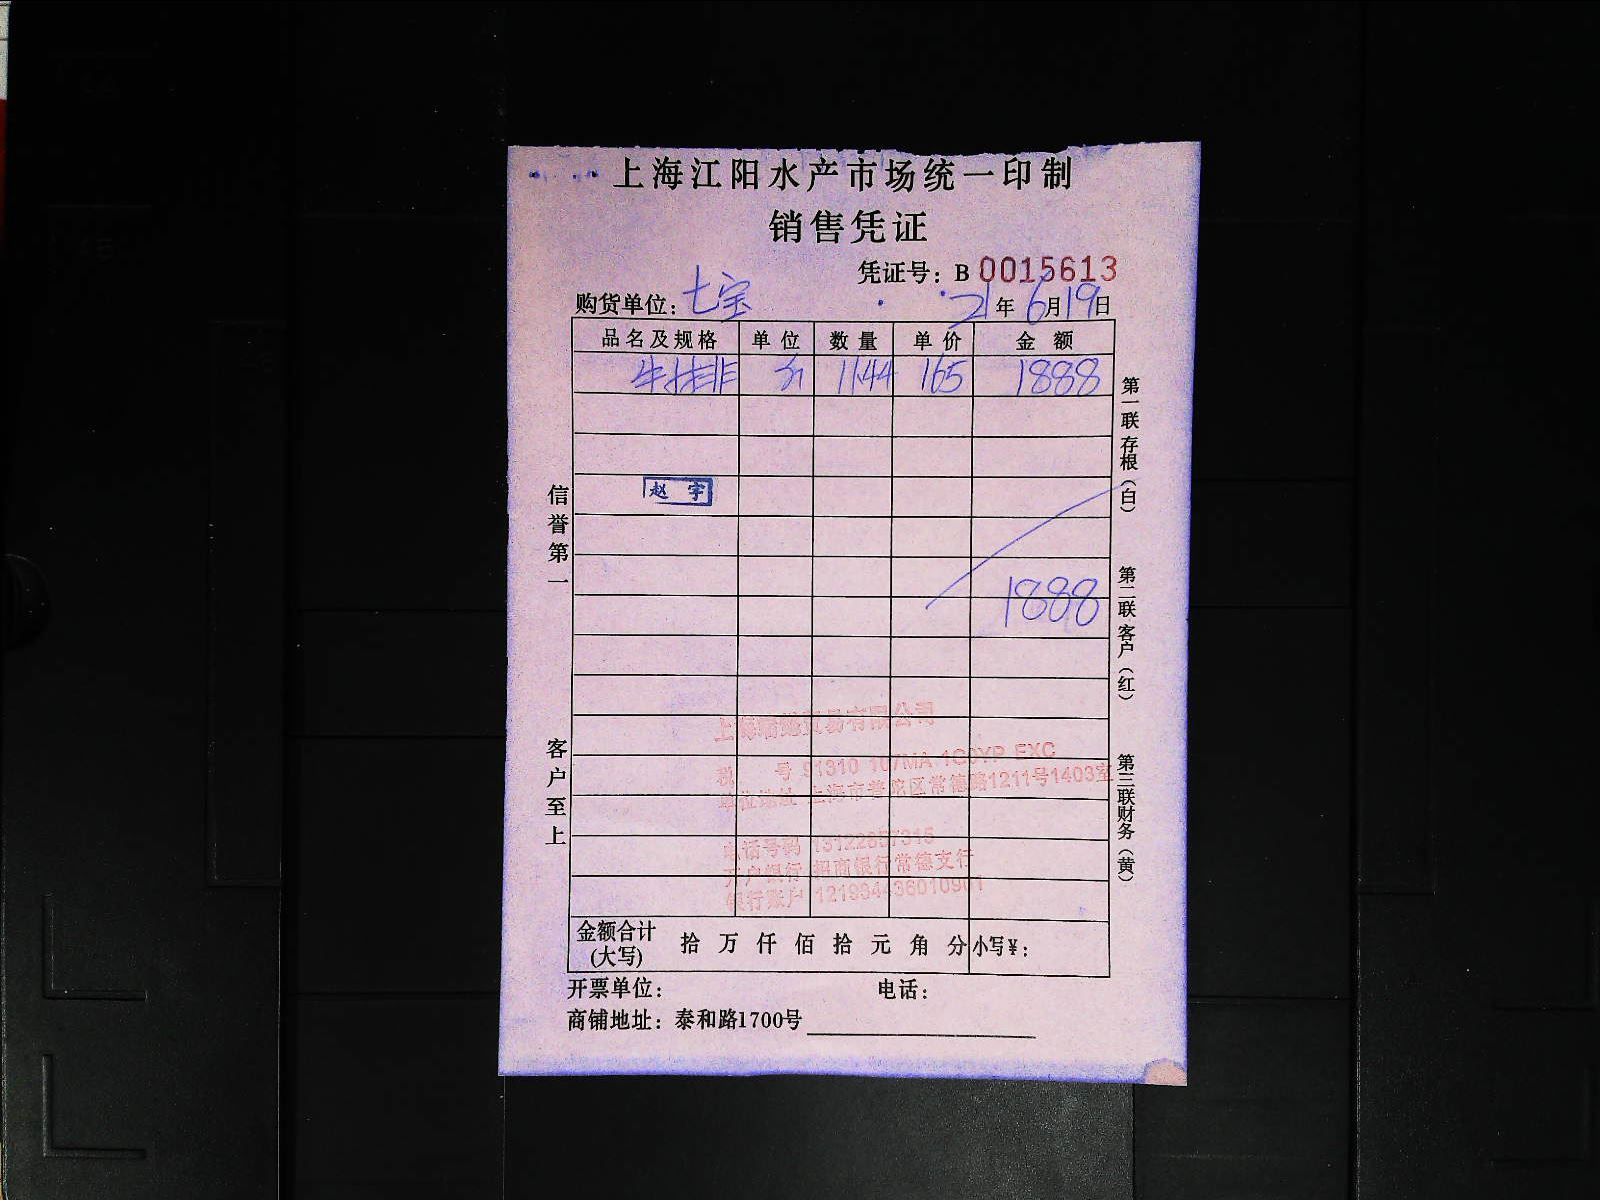 上海江阳水产市场统一印制
销售凭证
凭证号：B 0015613
购货单位：七宝 21年6月19日
品名及规格 单位 数量 单价 金额
牛排 11.44 165 1888
赵宇
1888
上海 贸易有限公司
税 号 91310 107MA 1G0YP EXC
单位地址 上海市普陀区常德路1211号1403室
电话号码
开户银行 招商银行常德支行
银行账户
金额合计(大写) 拾 万 仟 佰 拾 元 角 分 小写¥：
开票单位： 电话：
商铺地址：泰和路1700号
信誉第一
客户至上
第一联存根（白）
第二联客户（红）
第三联财务（黄）